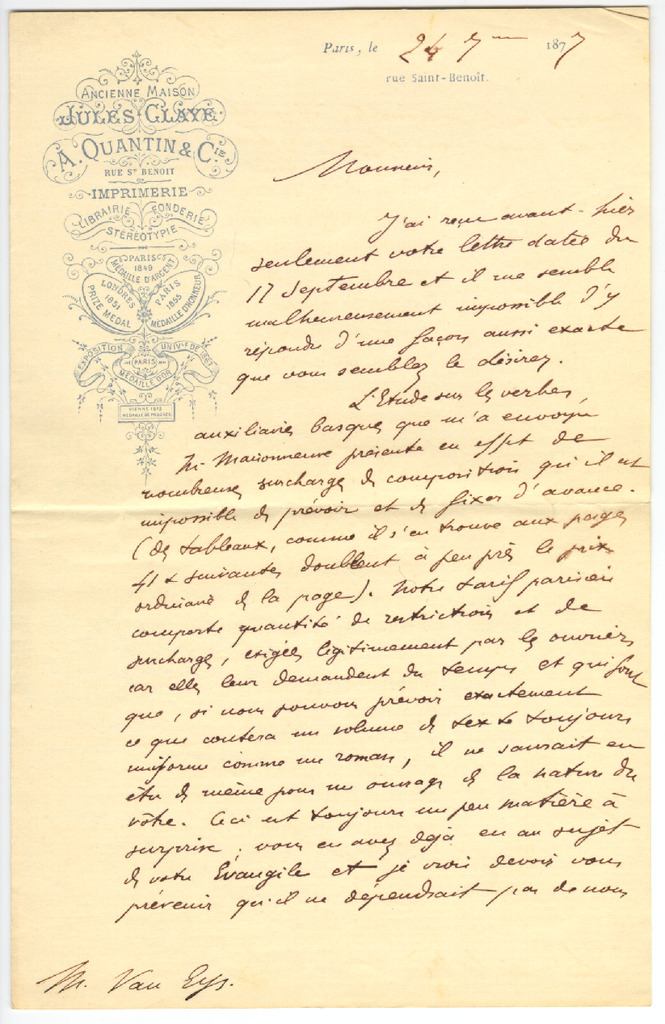 Paris, le 24 7bre 1877
rue Saint-Benoît.
ANCIENNE MAISON
JULES CLAYE
A. QUANTIN & Cie
RUE St BENOIT
IMPRIMERIE
LIBRAIRIE FONDERIE
STÉRÉOTYPIE
PARIS
1849
MÉDAILLE D'ARGENT
LONDRES
1851
PRIZE MEDAL
PARIS
1855
MÉDAILLE D'HONNEUR
EXPOSITION UNIVle DE 1867
PARIS
MÉDAILLE D'OR
VIENNE 1873
MÉDAILLE DE PROGRÈS
Monsieur,
J'ai reçu avant-hier
seulement votre lettre datée du
17 Septembre et il me semble
malheureusement impossible d'y
répondre d'une façon aussi exacte
que vous semblez le désirer.
L'Etude sur les verbes
auxiliaires basques que m'a envoyée
M. Maisonneuve présente en effet de
nombreuses surcharges de composition qu'il est
impossible de prévoir et de fixer d'avance.
(des tableaux, comme il s'en trouve aux pages
41 & suivantes doublent à peu près le prix
ordinaire de la page). Notre tarif parisien
comporte quantité de restrictions et de
surcharges, exigées légitimement par les ouvriers
car elles leur demandent du temps et qui font
que, si nous pouvons prévoir exactement
ce que coûtera un volume de texte toujours
uniforme comme un roman, il ne saurait en
être de même pour un ouvrage de la nature du
vôtre. Ceci est toujours un peu matière à
surprise. vous en avez déjà eu au sujet
de votre Évangile et je crois devoir vous
prévenir qu'il ne dépendrait pas de nous
M. Van Eys.